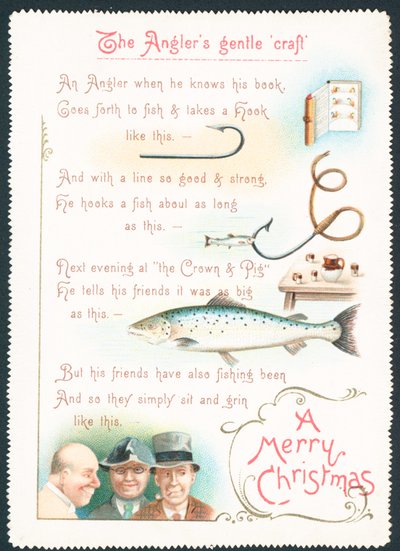 The Angler's gentle 'craft'
An Angler when he knows his book,
Goes forth to fish & takes a Hook
like this. —
And with a line so good & strong,
He hooks a fish about as long
as this. —
Next evening at "the Crown & Pig"
He tells his friends it was as big
as this. —
But his friends have also fishing been
And so they simply sit and grin
like this. —
A
Merry
Christmas